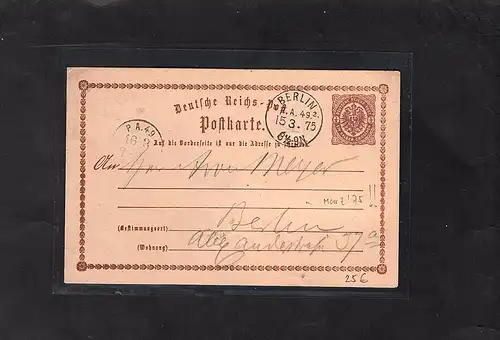 Deutsche Reichs-Post
Postkarte.
BERLIN
P.A. 49.
15 3. 75
P.A. 49
16 3
Auf die Vorderseite ist nur die Adresse zu
An Herrn Meyer
MÄRZ '75 !!
(Bestimmungsort) Berlin
(Wohnung) Alexanderstraße 37a
25€